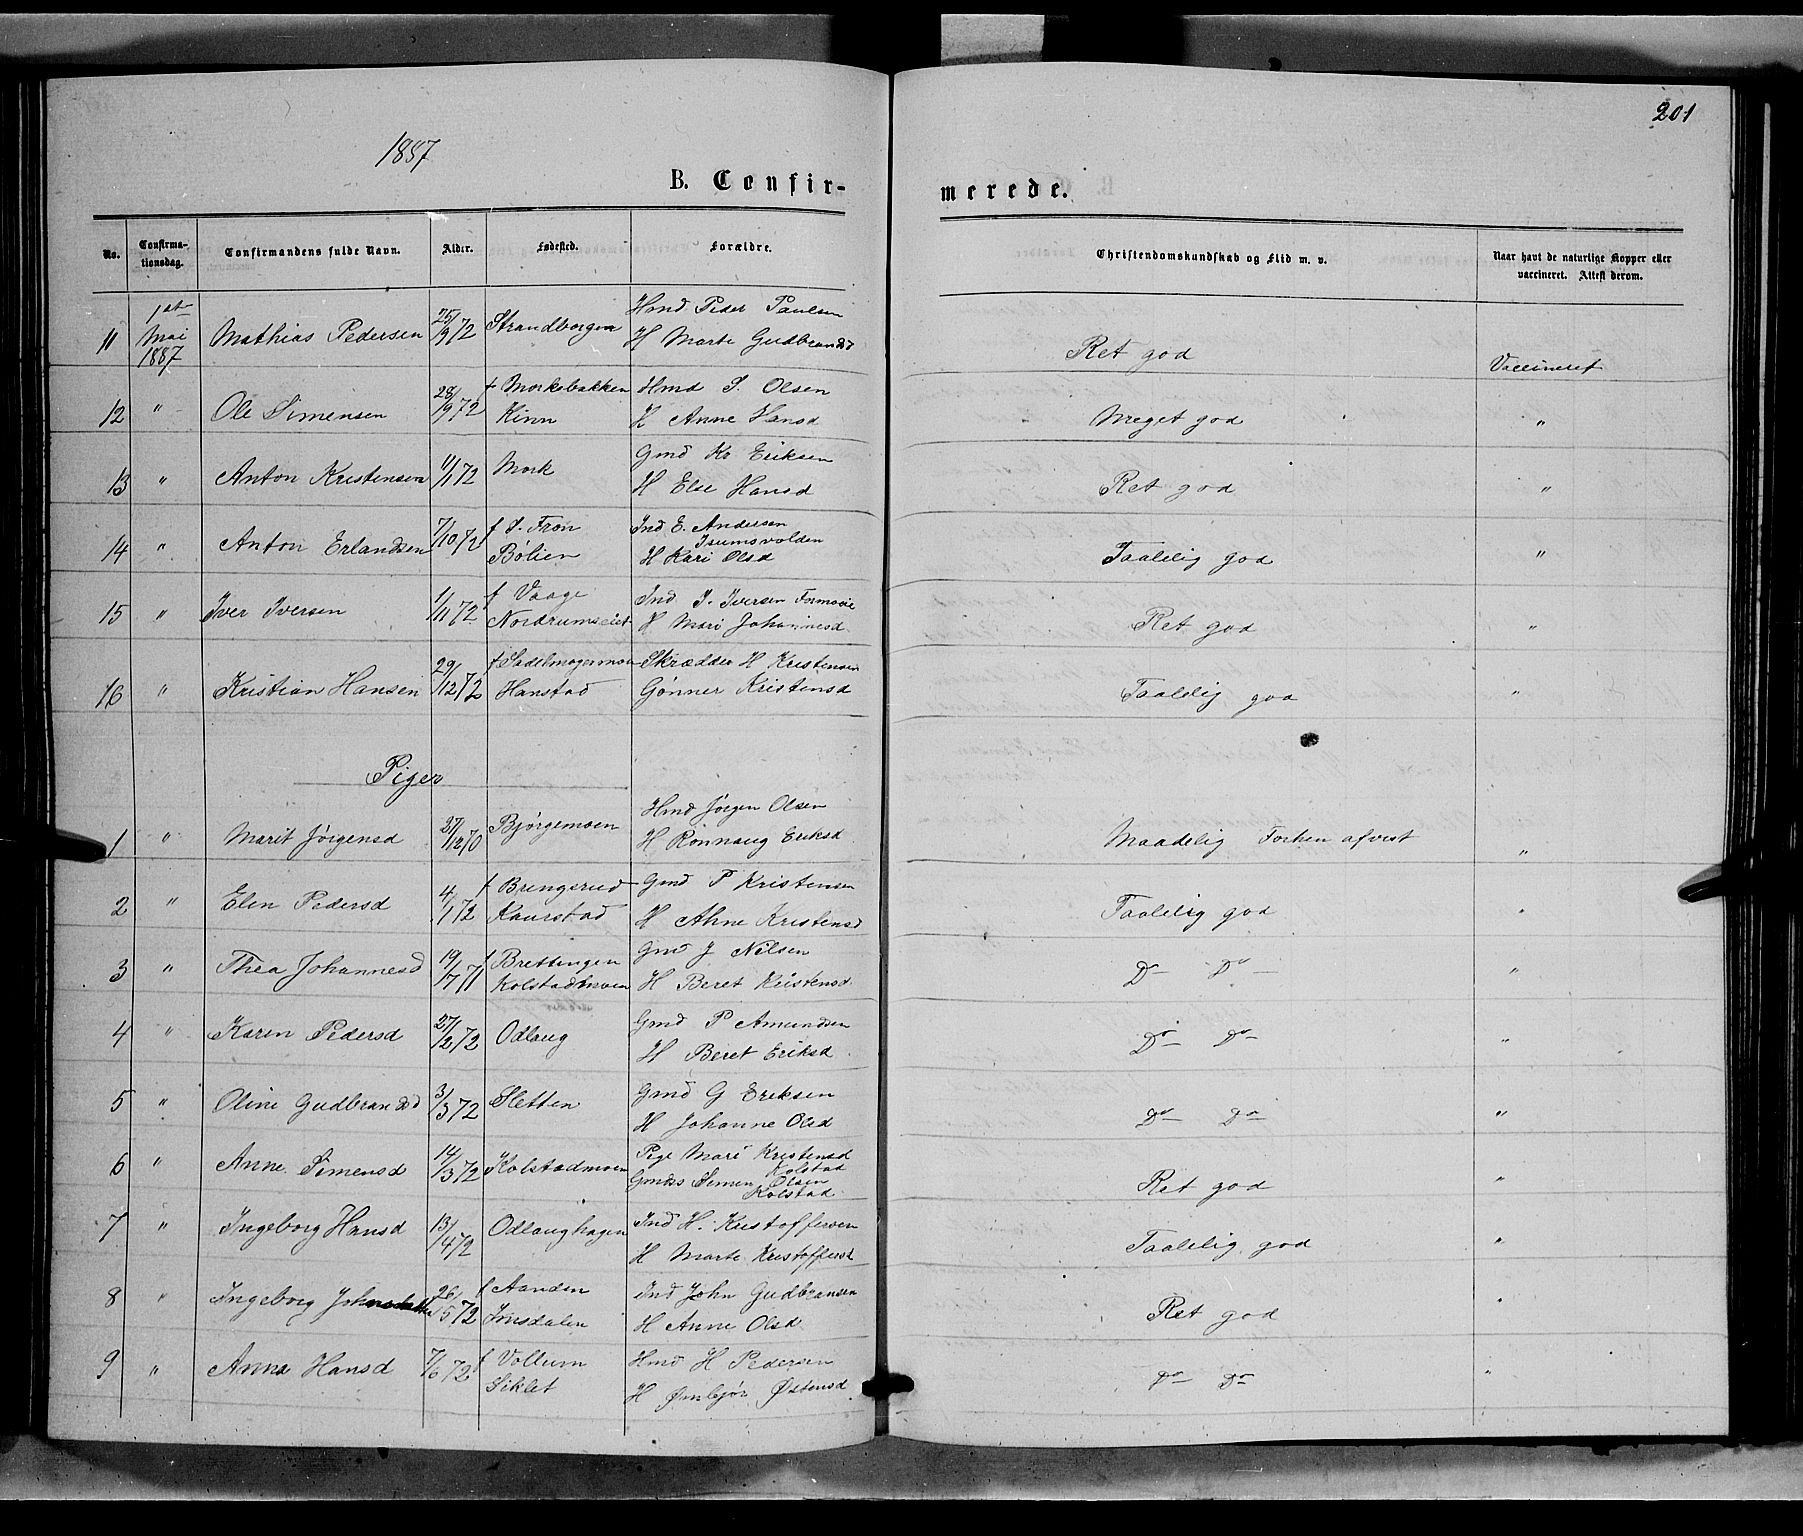 201
1887
B. Confir-
merede.
No.
Confirma-
tionsdag.
Confirmandens fulde Navn.
Alder.
Fødested.
Forældre.
Christendomskundskab og Flid m. v.
Naar havt de naturlige Kopper eller
vaccineret. Attest derom.
11 1st Mai 1887 Mathias Pedersen 25/9 72 Strandborgen Hmd Peder Paulsen
H Marte Gudbrandsd Ret god Vaccineret
12 " Ole Simensen 28/9 72 f Morksbakken Hmd S. Olsen
Kinn H Anne Hansd Meget god "
13 " Anton Kristensen 11/1 72 Mork Gmd Kr Eriksen
H Else Hansd Ret god "
14 " Anton Erlandsen 7/10 72 f S. Fron Ind E. Andersen
Isumsvolden
Bølien H Kari Olsd Taalelig god "
15 " Iver Iversen 1/11 72 f Vaage Ind I. Iversen Formoeie
Nordrumseiet H Mari Johannesd Ret god "
16 " Kristian Hansen 29/12 72 f Sadelmagermoen Skrædder H Kristensen
Hanstad Gønner Kristensd Taalelig god "
Piger
1 " Marit Jørgensd 27/12 70 Bjørgemoen Hmd Jørgen Olsen
H Rønnaug Eriksd Maadelig Forhen afvist "
2 " Elen Pedersd 4/1 72 f Bringerud Gmd P Kristensen
Kaurstad H Ahne Kristensd Taalelig god "
3 " Thea Johannesd 19/7 71 f Brettingen Gmd J Nilsen
Kolstadmoen H Beret Kristensd Do Do "
4 " Karen Pedersd 27/2 72 Odlaug Gmd P Amundsen
H Beret Eriksd Do Do "
5 " Oline Gudbrandsd 3/3 72 Sletten Gmd G Eriksen
H Johanne Olsd Do Do "
6 " Anne Simensd 14/3 72 Kolstadmoen Pige Mari Kristensd
Kolstad
Gmds Simen Olsen
Kolstad Ret god "
7 " Ingeborg Hansd 13/4 72 Odlaughagen Ind H. Kristoffersen
H Marte Kristoffersd Taalelig god "
8 " Ingeborg Johnsdatter 26/5 72 f Aanden Ind John Gudbransen
Imsdalen H Anne Olsd Ret god "
9 " Anna Hansd 7/6 72 f Vollum Hmd H Pedersen
Siklet H Ømbjør Østensd Do Do "